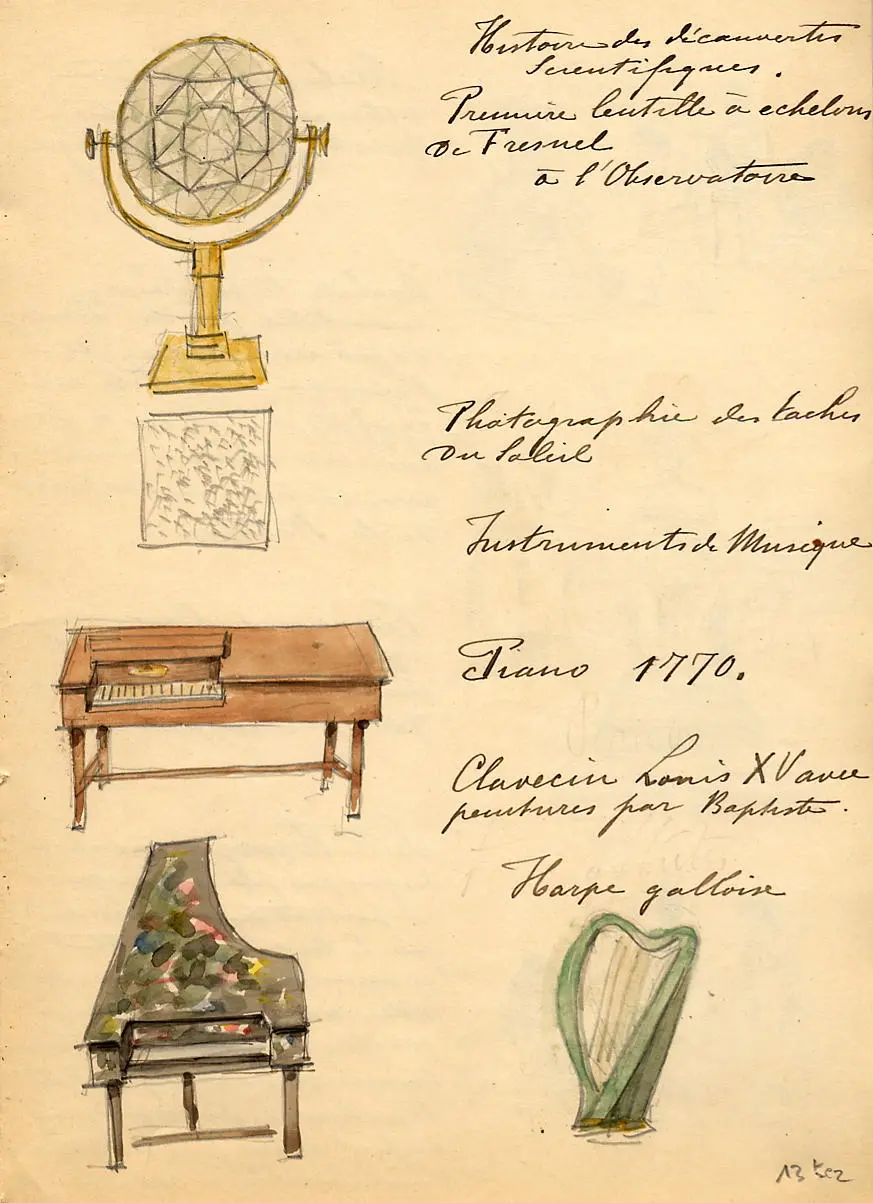 Histoire des découvertes
Scientifiques.
Première lentille à echelons
de Fresnel
à l'Observatoire
Photographie des taches
du Soleil
Instruments de Musique
Piano 1770.
Clavecin Louis XV avec
peintures par Baptiste.
Harpe galloise
13